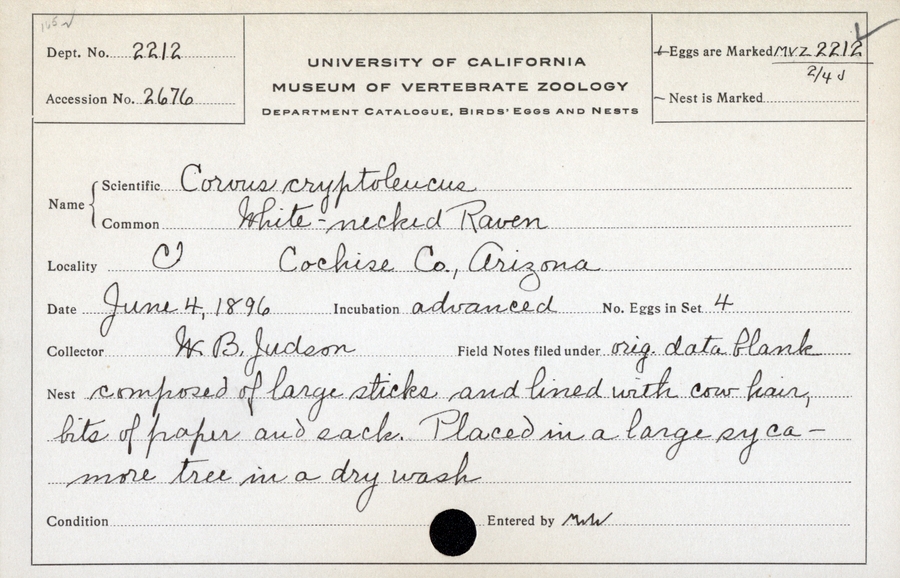 Dept. No. 2212
Accession No. 2676
UNIVERSITY OF CALIFORNIA
MUSEUM OF VERTEBRATE ZOOLOGY
DEPARTMENT CATALOGUE, BIRDS' EGGS AND NESTS
Eggs are Marked MVZ 2212
2/4 J
Nest is Marked
Name
Scientific Corvus cryptoleucus
Common White-necked Raven
Locality Cochise Co., Arizona
Date June 4, 1896 Incubation advanced No. Eggs in Set 4
Collector W. B. Judson Field Notes filed under orig. data blank
Nest composed of large sticks and lined with cow hair,
bits of paper and sack. Placed in a large syca-
more tree in a dry wash
Condition Entered by